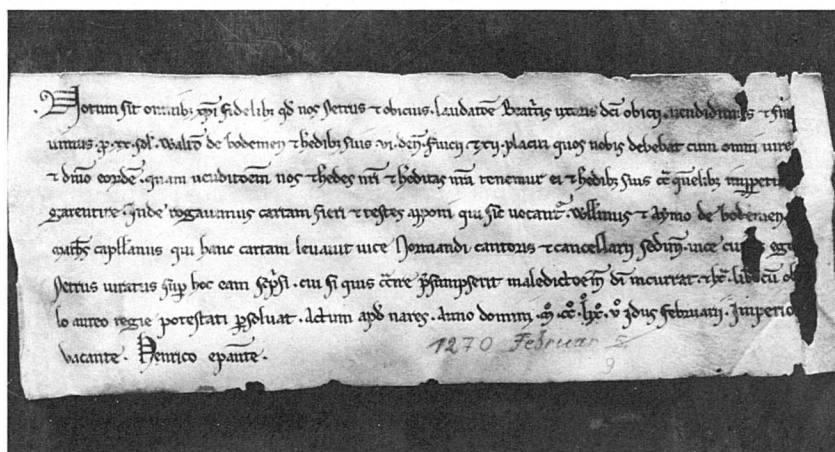 Notum sit omnib; xpi fidelib; qd nos Petrus ⁊ obicius. laudatōe Beat'cis uxoris dc̄i obicii. uendidimus ⁊ fini
uimus. p. xx. sol. Walt'o de bodemen ⁊ hedib; suis vi. den. ⁊ xii. placiti quos nobis debebat cum omni iure
⁊ dn̄io eordē. quam uenditōem nos ⁊ hedes nr̄i ⁊ heditas nr̄a tenemur ei ⁊ hedib; suis
garentire. Inde rogauimus cartam fieri ⁊ testes apponi qui sic uocant'. Willmus ⁊ Aymo de bodemen.
capllanus qui hanc cartam leuauit uice Normandi cantoris ⁊ cancellarii Sedun. uice ego
Petrus iuratus sup hoc eam sc'psi. cui si quis p'sumpserit maledictōem di incurrat. ⁊ lx. lib. cū ob
lo aureo regie potestati psoluat. Actum apd nares. Anno domini. M. CC. Lxx. v Idus februarii. Imperio
vacante. Henrico ep̄ante. 1270 Februar
9